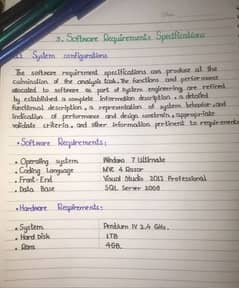 3. Software Requirements Specifications
System configurations
The software requirement specifications can produce at the
culmination of the analysis task. The functions and performance
allocated to software as part of system engineering are refined
by established a complete information description, a detailed
functional description, a representation of system behavior, and
indication of performance and design constrain, appropriate
validate criteria, and other information pertinent to requirements
• Software Requirements:
• Operating system Windows 7 Ultimate
• Coding Language MVC 4 Razor
• Front-End Visual Studio 2012 Professional
• Data Base SQL Server 2008
• Hardware Requirements:
• System Pentium IV 2.4 GHz.
• Hard Disk 1TB
• Ram 4GB.